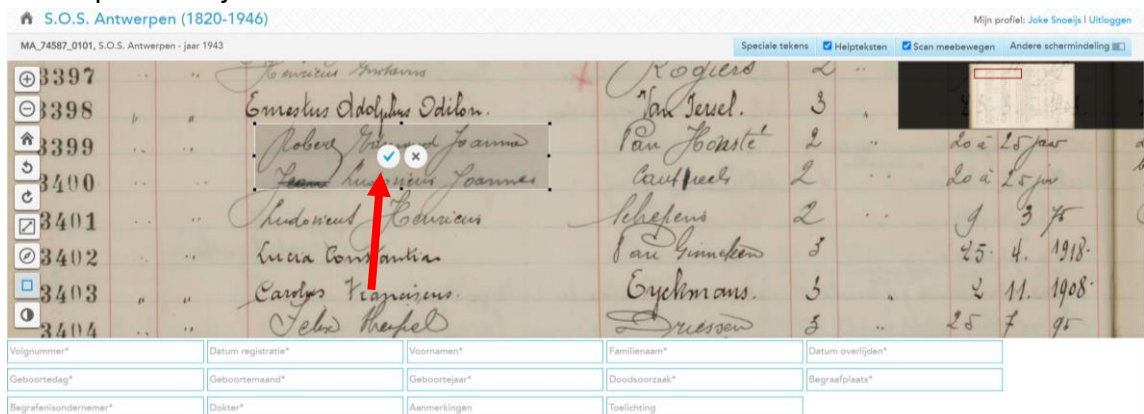 S.O.S. Antwerpen (1820-1946)
Mijn profiel: Joke Snoeijs | Uitloggen
MA_74587_0101, S.O.S. Antwerpen - jaar 1943
Speciale tekens Helpteksten Scan meebewegen Andere schermindeling
3397 " Henricus Gustavus Rogiers 2 "
3398 " " Ernestus Adolphus Odilon. Van Iersel. 3 "
3399 Robert Joanna Van 2 " 20 à 25 jaar
3400 Ludovicus Joannes 2 20 à 25 jaar
3401 " " Ludovicus Henricus Schepens 2 " 9 3 75
3402 " " Lucia Constantia Van Ginneken 3 25. 4. 1918.
3403 " " Carolus Franciscus. Eyckmans. 3 " 2 11. 1908.
3404 " " Felix Driessen 3 " 25 7 95
Volgnummer* Datum registratie* Voornamen* Familienaam* Datum overlijden*
Geboortedag* Geboortemaand* Geboortejaar* Doodsoorzaak* Begraafplaats*
Begrafenisondernemer* Dokter* Aanmerkingen Toelichting